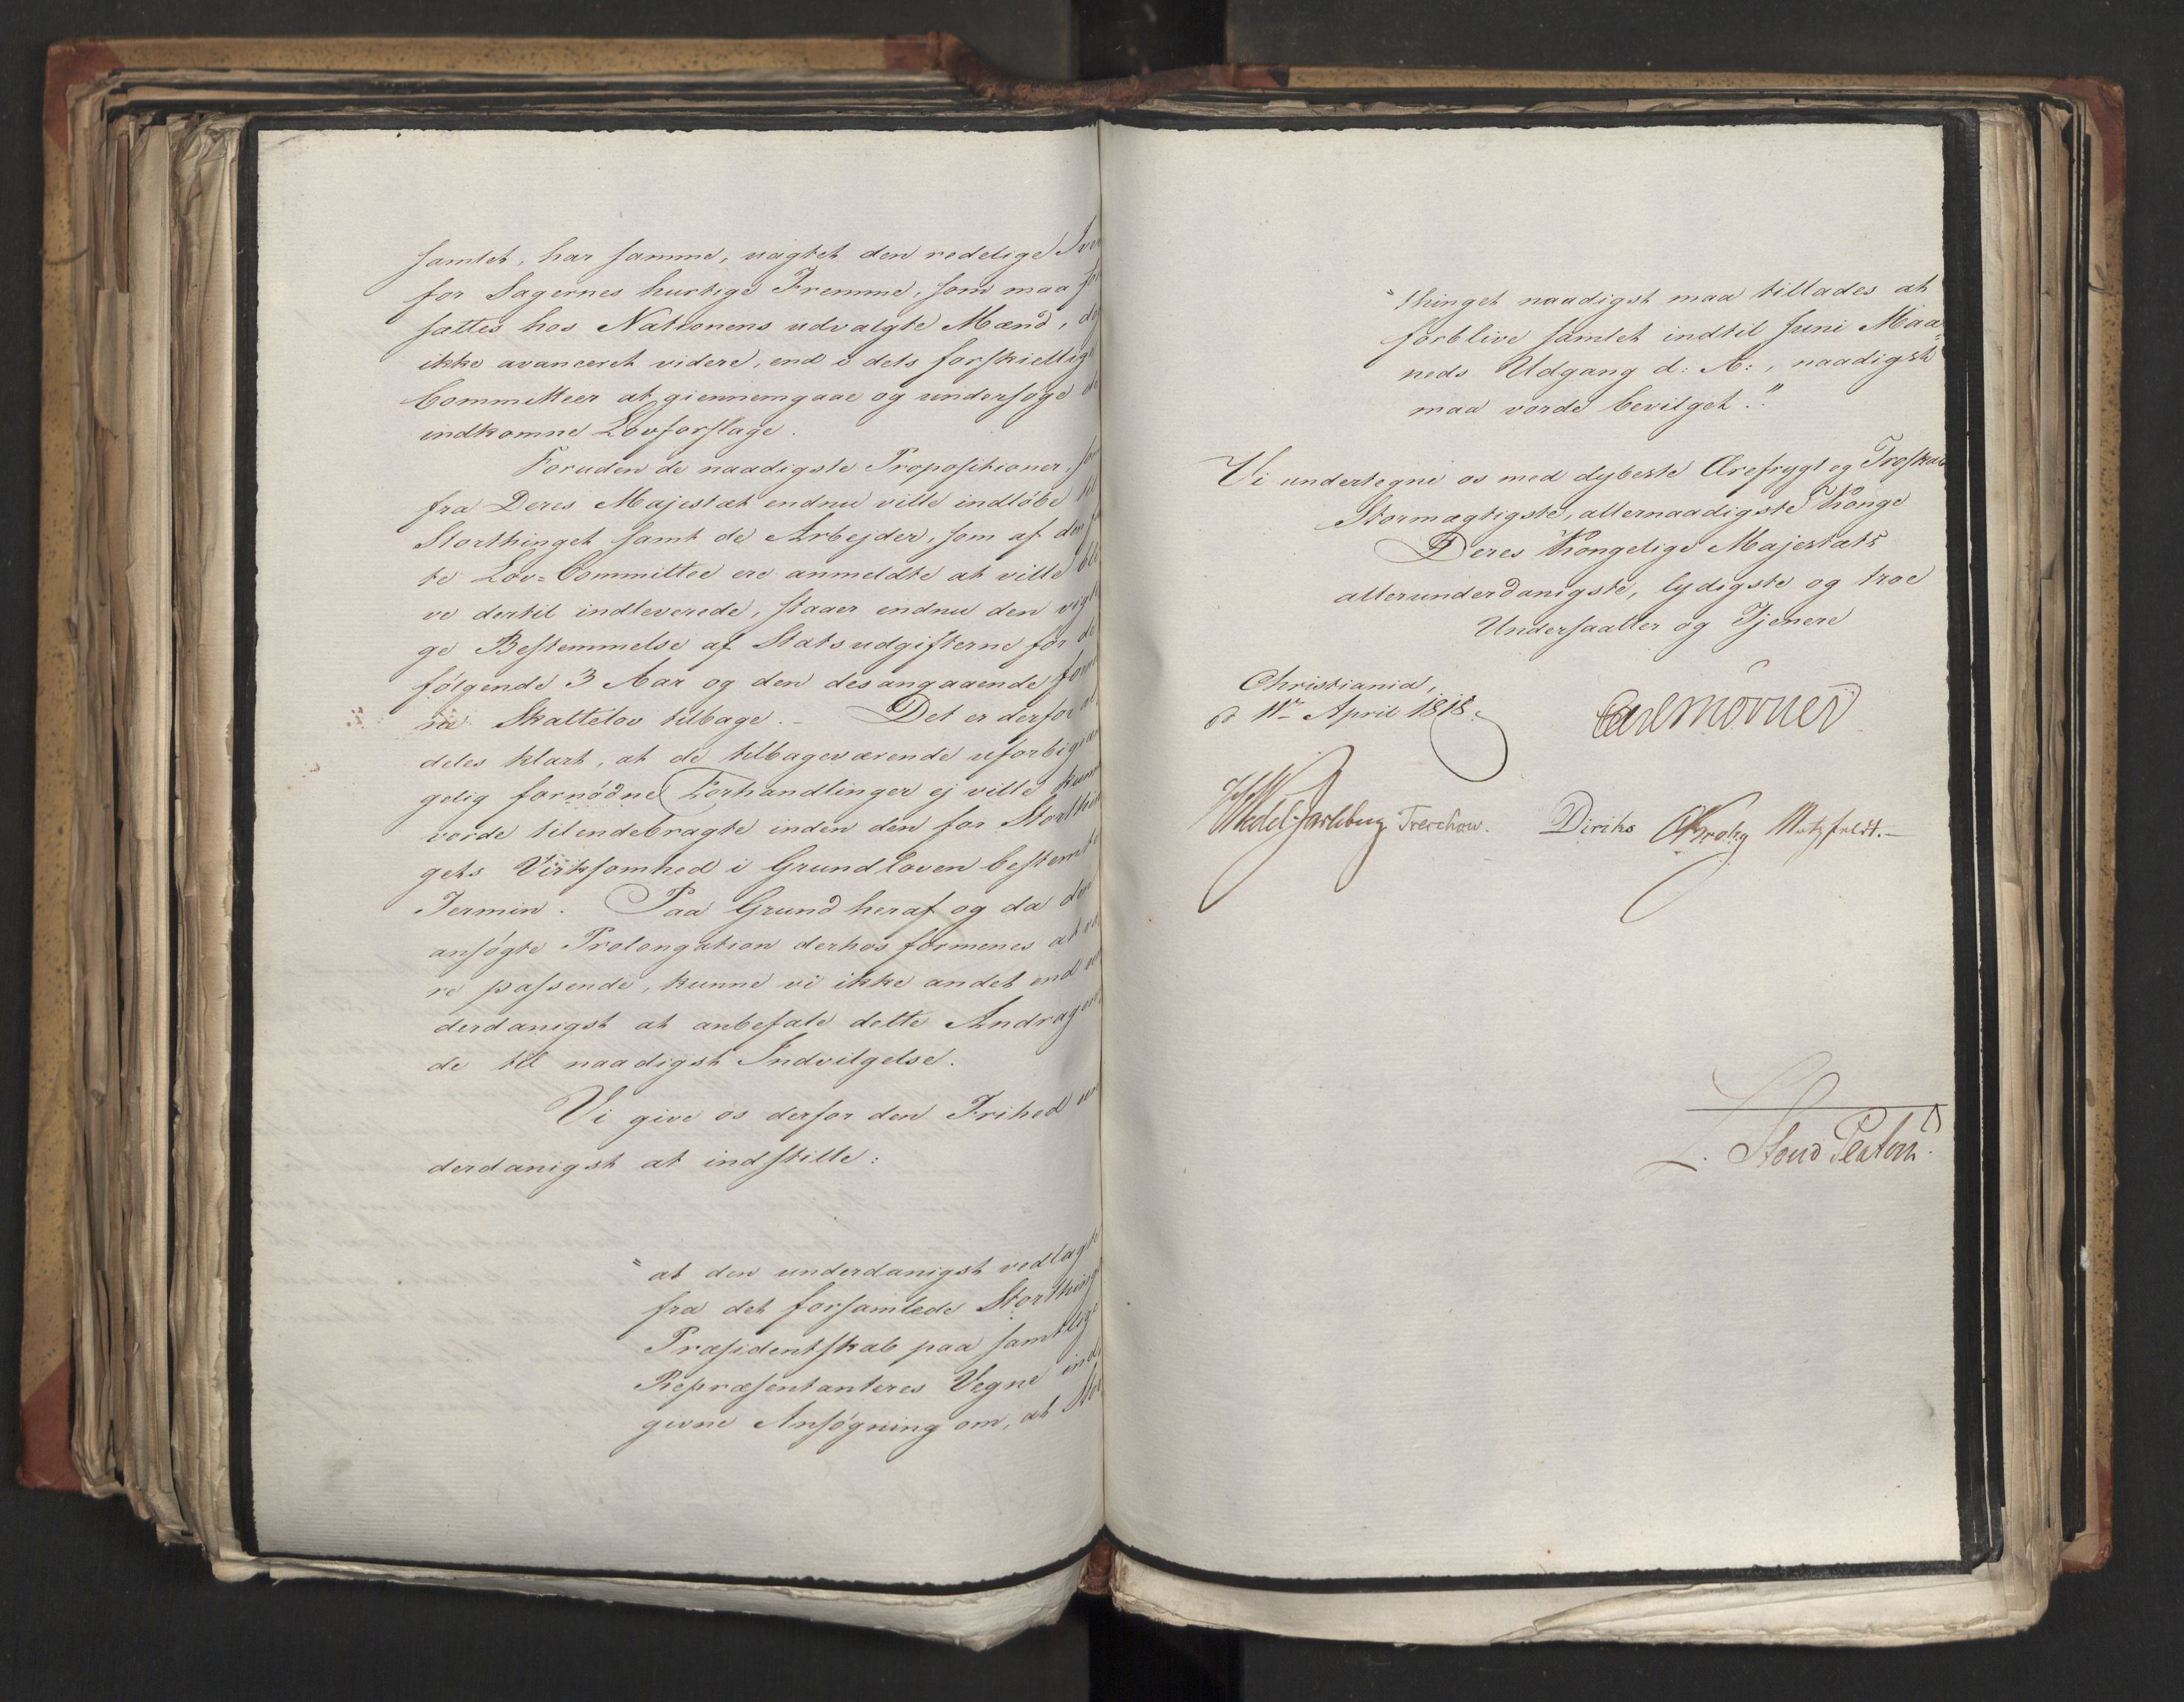 samlet, har samme, uagtet den redelige Iver
for Sagernes hurtige Fremme, som maa for
sættes hos Nationens udvalgte Mænd,
ikke avanceret videre, end i dets forskiellige
Committeer at giennemgaae og undersøge de
indkomne Lovforslage.
Foruden de naadigste Propositioner, som
fra Deres Majestæt endnu ville indløbe til
Storthinget samt de Arbejder, som af den
te Lov=Committee ere anmeldte at ville bli
ve dertil indleverede, staaer endnu den vigti
ge Bestemmelse af Statsudgifterne for de
følgende 3 Aar og den desangaaende forn
ne Skattelov tilbage. – Det er derfor al
deles klart, at de tilbageværende uforbigjæn
gelig fornødne Forhandlinger ej ville kunne
vorde tilendebragte inden den for Storthin
gets Virksomhed i Grundloven bestemte
Termin. Paa Grund heraf og da den
ansøgte Prolongation derhos formenes at væ
re passende, kunne vi ikke andet end un
derdanigst at anbefale dette Andragen
de til naadigst Indvilgelse.
Vi give os derfor den Frihed un
derdanigst at indstille:
"at den underdanigst vedlagte
fra det forsamlede Storthings
Præsidentskab paa samtlige
Repræsentanteres Vegne ind
givne Ansøgning om, at Stor
"thinget naadigst maa tillades at
forblive samlet indtil Juni Maa=
neds Udgang d: A:, naadigst
maa vorde bevilget."
Vi undertegne os med dybeste Ærefrygt og Troskab
Stormægtigste, allernaadigste Konge
Deres Kongelige Majestæts
allerunderdanigste, lydigste og troe
Undersaatter og Tjenere
Christiania,
d 11te April 1818.
Carl Mörner
Wedel-Jarlsberg Treschow. Diriks CKrohg Motzfeldt.–
L. Stoud Platou